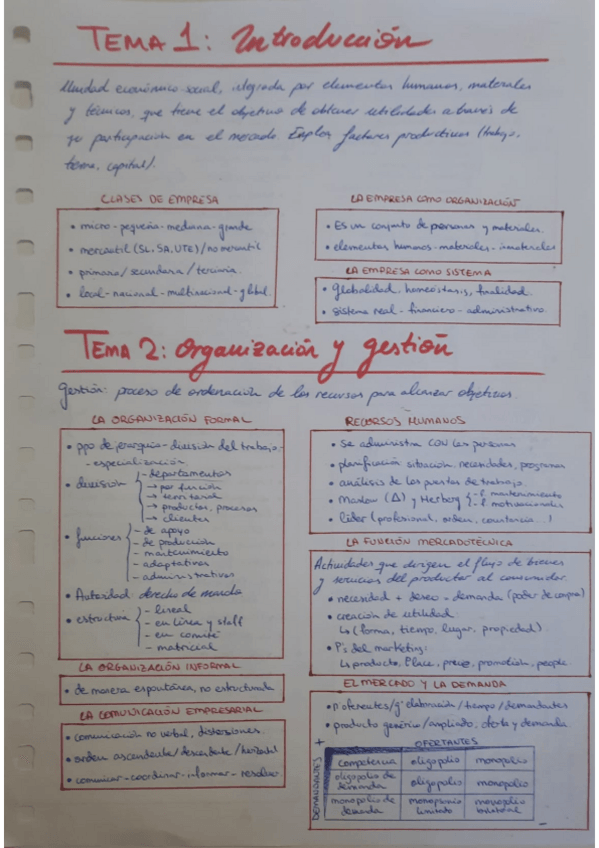 TEMA 1: Introducción
Unidad económico social, integrada por elementos humanos, materiales
y técnicos, que tiene el objetivo de obtener utilidades a través de
su participación en el mercado. Emplea factores productivos (trabajo,
tierra, capital).
CLASES DE EMPRESA
• micro - pequeña - mediana - grande
• mercantil (SL, SA, UTE) / no mercantil
• primaria / secundaria / terciaria.
• local - nacional - multinacional - global.
LA EMPRESA COMO ORGANIZACIÓN
• Es un conjunto de personas y materiales.
• elementos humanos - materiales - inmateriales
LA EMPRESA COMO SISTEMA
• globalidad, homeóstasis, finalidad.
• sistema real - financiero - administrativo.
TEMA 2: Organización y gestión
Gestión: proceso de ordenación de los recursos para alcanzar objetivos.
LA ORGANIZACIÓN FORMAL
• ppo de jerarquía - división del trabajo -
- especialización
• división - departamentos
→ por función
→ territorial
→ productos, procesos
→ clientes
• funciones - de apoyo
- de producción
- mantenimiento
- adaptativas
- administrativas
• Autoridad: derecho de mando
• estructura - lineal
- en línea y staff
- en comité
- matricial
LA ORGANIZACIÓN INFORMAL
• de manera espontánea, no estructurada
LA COMUNICACIÓN EMPRESARIAL
• comunicación no verbal, distorsiones.
• orden ascendente / descendente / horizontal
• comunicar - coordinar - informar - resolver
RECURSOS HUMANOS
• Se administra CON las personas
• planificación: situación, necesidades, programas
• análisis de los puestos de trabajo.
• Maslow (Δ) y Herzberg - f. mantenimiento
- f. motivacionales
• líder (profesional, orden, constancia...)
LA FUNCIÓN MERCADOTÉCNICA
Actividades que dirigen el flujo de bienes
y servicios del productor al consumidor.
• necesidad + deseo - demanda (poder de compra)
• creación de utilidad
↳ (forma, tiempo, lugar, propiedad)
• P's del marketing:
↳ producto, Place, precio, promotion, people
EL MERCADO Y LA DEMANDA
• nº oferentes / gº elaboración / tiempo / demandantes
• producto genérico / ampliado, oferta y demanda
+ OFERTANTES
DEMANDANTES
competencia oligopolio monopolio
oligopolio de demanda oligopolio monopolio
monopolio de demanda monopsonio limitado monopolio bilateral